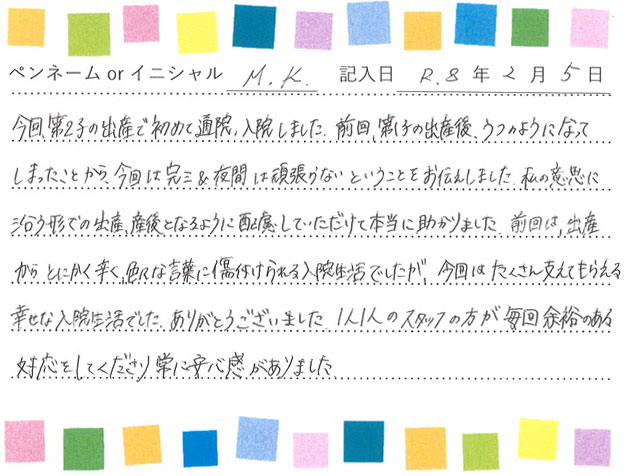 ペンネーム or イニシャル M.K. 記入日 R.8年2月5日
今回、第2子の出産で初めて通院、入院しました。前回、第1子の出産後、うつのようになって
しまったことから、今回は完ミ&夜間は頑張らないということをお伝えしました。私の意思に
沿う形での出産、産後となるように配慮していただけて本当に助かりました。前回は、出産
からとにかく辛く、色々な言葉に傷付けられる入院生活でしたが、今回はたくさん支えてもらえる
幸せな入院生活でした。ありがとうございました。1人1人のスタッフの方が毎回余裕のある
対応をしてくださり常に安心感がありました。